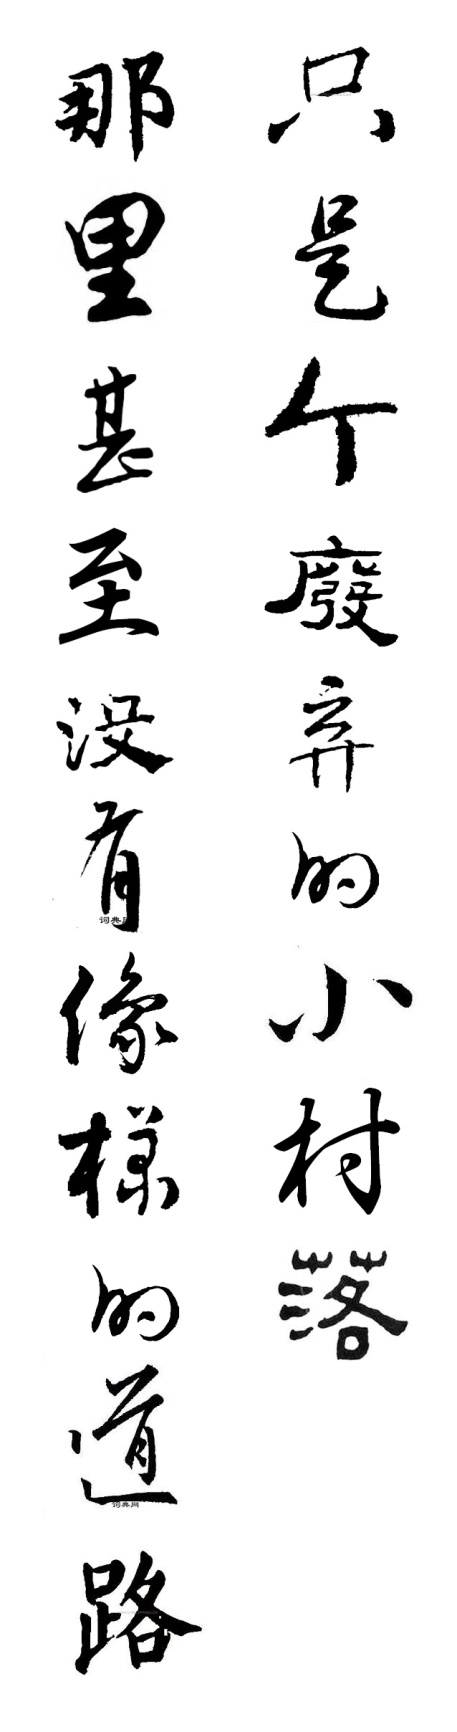 只是个廢弃的小村落
那里甚至没有像樣的道路
词典网
词典网